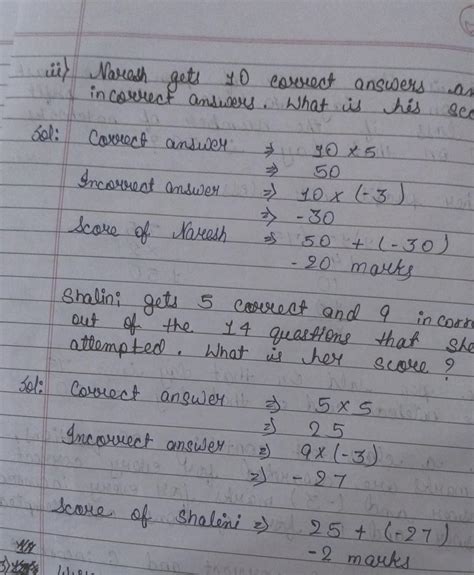 iii) Naresh gets 10 correct answers
incorrect answers. What is his
Sol: Correct answer ⇒ 10 × 5
⇒ 50
Incorrect answer ⇒ 10 × (-3)
⇒ -30
Score of Naresh ⇒ 50 + (-30)
-20 marks
Shalini gets 5 correct and 9
out of the 14 questions that she
attempted. What is her score?
Sol: Correct answer ⇒ 5 × 5
⇒ 25
Incorrect answer ⇒ 9 × (-3)
⇒ -27
Score of Shalini ⇒ 25 + (-27)
-2 marks